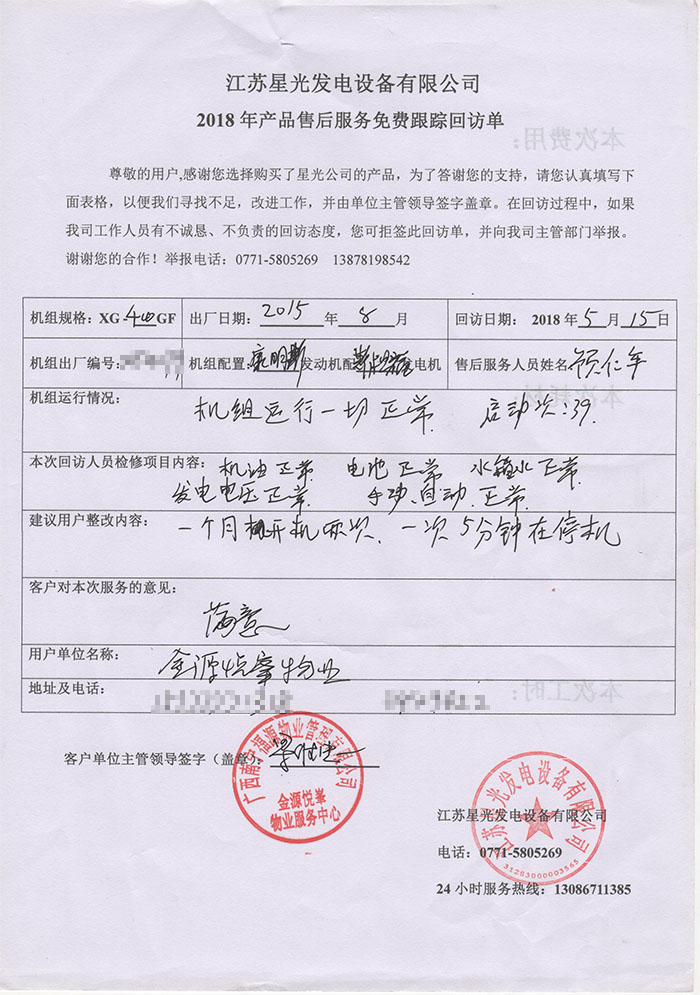 江苏星光发电设备有限公司
2018 年产品售后服务免费跟踪回访单
尊敬的用户,感谢您选择购买了星光公司的产品，为了答谢您的支持，请您认真填写下
面表格，以便我们寻找不足，改进工作，并由单位主管领导签字盖章。在回访过程中，如果
我司工作人员有不诚恳、不负责的回访态度，您可拒签此回访单，并向我司主管部门举报。
谢谢您的合作！举报电话：0771-5805269 13878198542
机组规格：XG-400GF 出厂日期：2015 年 8 月 回访日期：2018 年 5 月 15 日
机组出厂编号： 机组配置：康明斯发动机配 发电机 售后服务人员姓名
机组运行情况：
机组运行一切正常. 启动次:39.
本次回访人员检修项目内容：机油正常 电池正常 水箱水正常.
发电电压正常. 手动、自动.正常.
建议用户整改内容：
一个月 开机两次、一次5分钟在停机
客户对本次服务的意见：
满意
用户单位名称：
金源悦峯物业
地址及电话：
客户单位主管领导签字（盖章）：
广西南宁福源物业管理有限公司
金源悦峯
物业服务中心
江苏星光发电设备有限公司
31283000003565
江苏星光发电设备有限公司
电话：0771-5805269
24 小时服务热线：13086711385
本次费用：
本次耗材：
本次工时：